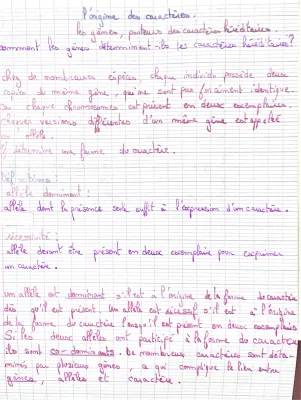 l'origine des caractères.
les gènes, porteurs des caractères héréditaires.
comment les gènes déterminent-ils les caractères héréditaires ?
chez de nombreuses espèces, chaque individu possède deux
copies du même gène, qui ne sont pas forcément identique.
car chaque chromosomes est présent en deux exemplaires.
chaques versions différentes d'un même gène est appelée
un allèle.
Il détermine une forme du caractère.
Définitions :
allèle dominant :
allèle dont la présence seule suffit à l'expression d'un caractère.
récessivité :
allèle devant être présent en deux exemplaire pour exprimer
un caractère.
un allèle est dominant s'il est à l'origine de la forme du caractère
dès qu'il est présent. Un allèle est récessif s'il est à l'origine
de la forme du caractère lorsqu'il est présent en deux exemplaires
Si les deux allèles ont participé à la forme du caractère
ils sont co-dominants. De nombreux caractères sont déter-
minés par plusieurs gènes, ce qui complique le lien entre
gènes, allèles et caractère.